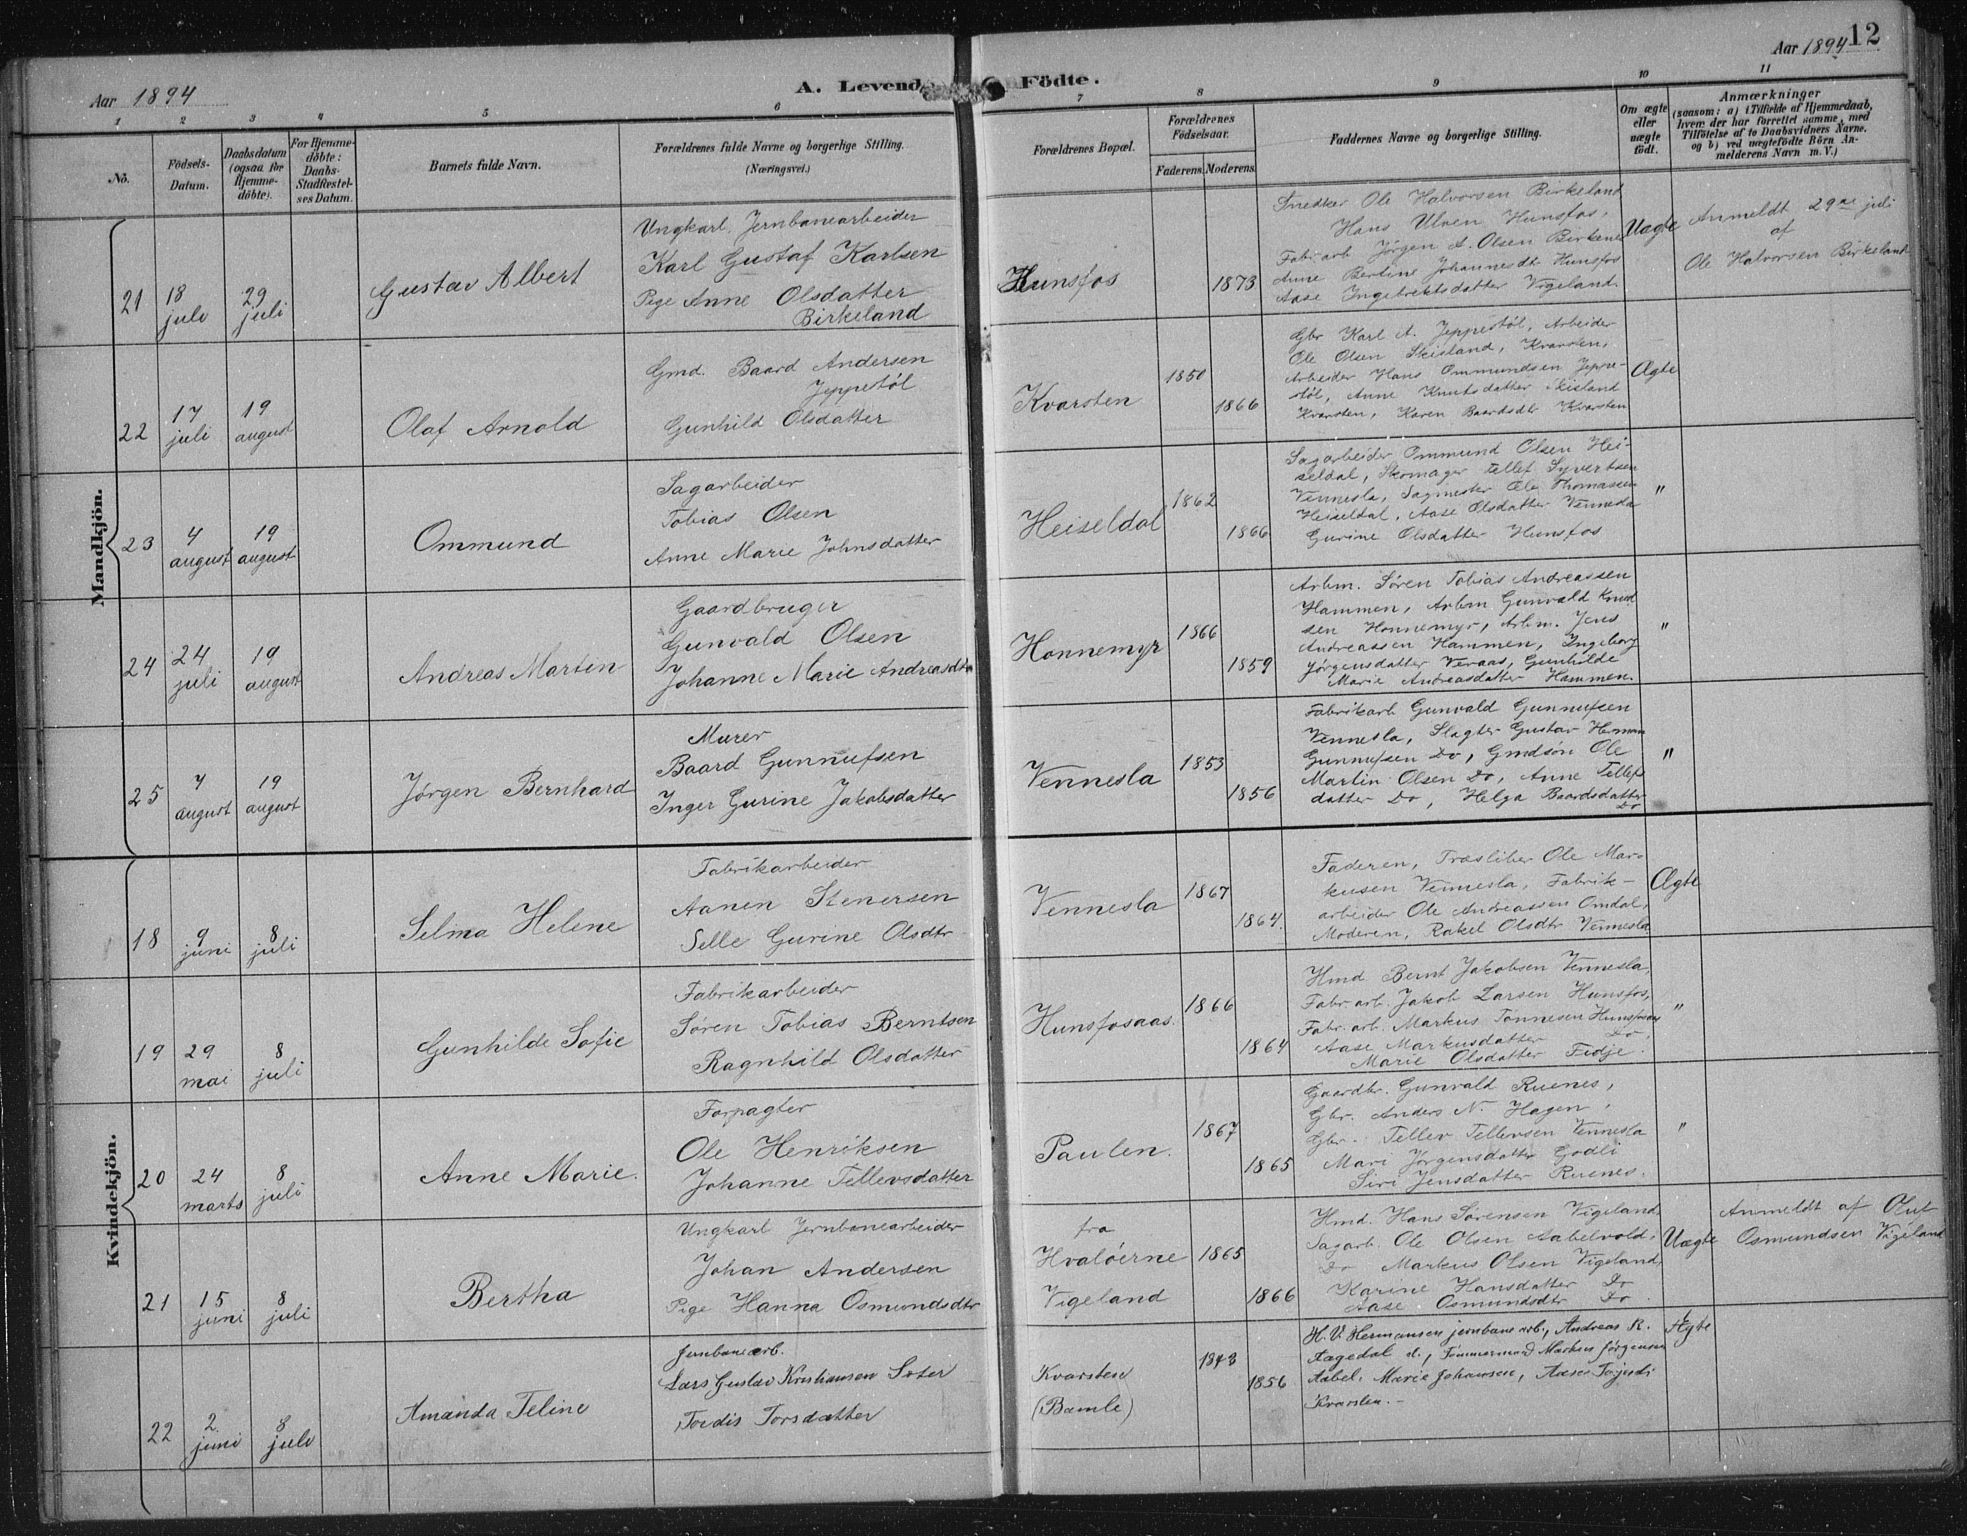 Aar 1894
A. Levende Födte.
Aar 1894 12
1 2 3 4 5 6 7 8 9 10 11
No.
Födsels-Datum.
Daabsdatum (ogsaa for Hjemmedöbte).
For Hjemmedöbte: Daabs-Stadfæstelses Datum.
Barnets fulde Navn.
Forældrenes fulde Navne og borgerlige Stilling. (Næringsvei.)
Forældrenes Bopæl.
Forældrenes Födselsaar.
Faderens Moderens
Faddernes Navne og borgerlige Stilling.
Om ægte eller uægte födt.
Anmærkninger
(saasom: a) i Tilfælde af Hjemmedaab, hvem der har forrettet samme, med Tilföielse af to Daabsvidners Navne. og b) ved uægtefödte Börn Anmelderens Navn m. V.)
Mandkjön.
21
18 juli
29 juli
Gustav Albert
Ungkarl, Jernbanearbeider
Karl Gustaf Karlsen
Pige Anne Olsdatter
Birkeland
Hunsfos
1873
Snedker Ole Halvorsen Birkeland
Hans Ulven Hunsfos,
Fabr arb Jörgen A. Olsen Birkenes
Anne Bertine Johannesdt Hunsfos
Aase Ingebrektsdatter Vigeland.
Uægte
Anmeldt 29de juli
af
Ole Halvorsen Birkeland
22
17 juli
19 august
Olaf Arnold
Gmd. Baard Andersen
Jeppestöl
Gunhild Olsdatter
Kvarsten
1850
1866
Gbr Karl A. Jeppestöl, Arbeider
Ole Olsen Skisland, Kvarsten,
Arbeider Hans Ommundsen Jeppe-
stöl, Anne Knutsdatter Skisland
Kvarsten, Karen Baardsdtr Kvarsten
Ægte
23
4 august
19 august
Ommund
Sagarbeider
Tobias Olsen
Anne Marie Johnsdatter
Heiseldal
1862
1866
Sagarbeider Ommund Olsen Hei-
seldal, Skomager Tellef Syvertsen
Vennesla, Sagmester Ole Thomassen
Heiseldal, Aase Olsdatter Vennesla
Gurine Olsdatter Hunsfos
"
24
24 juli
19 august
Andreas Martin
Gaardbruger
Gunvald Olsen
Johanne Marie Andreasdtr
Honnemyr
1866
1859
Arbm. Sören Tobias Andreassen
Hammen, Arbm Gunvald Knud
sen Honnemyr, Arbm. Jens
Andreassen Hammen, Ingeborg
Jörgensdatter Veraas, Gunhilde
Marie Andreasdatter Hammen.
"
25
7 august
19 august
Jörgen Bernhard
Murer
Baard Gunnufsen
Inger Gurine Jakobsdatter
Vennesla
1853
1856
Fabrikarb Gunvald Gunnufsen
Vennesla, Slagter Gustav Herman
Gunnufsen Do, Gmdsön Ole
Martin Olsen Do, Anne Tellefs
datter Do, Helga Baardsdatter
Do
"
Kvindekjön.
18
9 juni
8 juli
Selma Helene
Fabrikarbeider
Aanen Stenersen
Selle Gurine Olsdtr
Vennesla
1867
1864.
Faderen, Træsliber Ole Mar-
kusen Vennesla, Fabrik-
arbeider Ole Andreassen Omdal,
Moderen, Rakel Olsdtr Vennesla
Ægte
19
29 mai
8 juli
Gunhilde Sofie
Fabrikarbeider
Sören Tobias Berntsen
Ragnhild Olsdatter
Hunsfosaas.
1866
1864
Hmd Bernt Jakobsen Vennesla,
Fabr. arb. Jakob Larsen Hunsfos,
Fabr. arb. Markus Tönnesen Hunsfosaas
Aase Markusdatter Do,
Marie Olsdatter Fidje.
"
20
24 marts
8 juli
Anne Marie.
Forpagter
Ole Henriksen
Johanne Tellevsdatter
Paulen.
1867
1865
Gaardbr. Gunvald Ruenes,
Gbr. Anders N. Hagen,
Gbr. Tellev Tellevsen Vennesla
Mari Jörgensdatter Godli
Siri Jensdatter Ruenes.
"
21
15 juni
8 juli
Bertha
Ungkarl Jernbanearbeider
Johan Andersen
Pige Hanna Osmundsdtr
fra
Hvalöerne
Vigeland
1865
1866
Hmd. Hans Sörensen Vigeland
Sagarb. Ole Olsen Aabelvold,
Do Markus Olsen Vigeland,
Karine Hansdatter Do
Aase Osmundsdtr Do
Uægte
Anmeldt af Oluf
Osmundsen Vigeland
22
2 juni
8 juli
Amanda Teline
Jernbanearb.
Lars Gustav Kristiansen Sæter
Tordis Torsdatter
Kvarsten
(Bamle)
1843
1856
H. V. Hermansen jernbane arb., Andreas K.
Aagedal d., Tömmermand Markus Jörgensen
Aabel, Marie Johansen, Aase
Kvarsten.-
Ægte